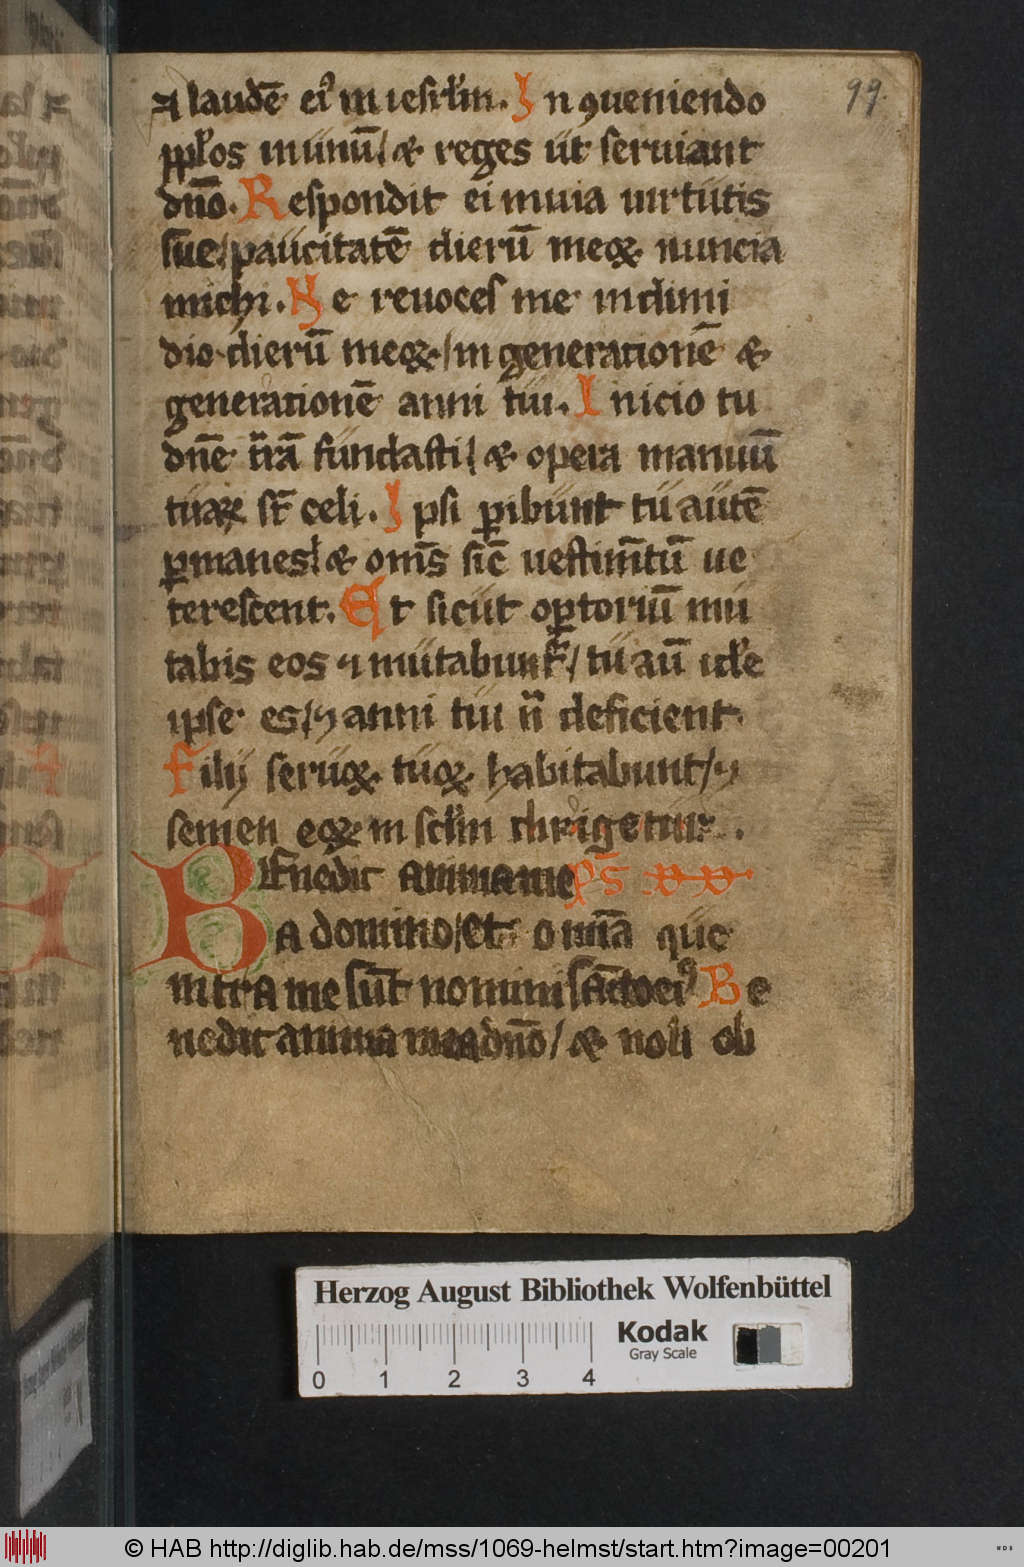 ⁊ laudē eiꝰ in ierl̄m. In ꝯueniendo
pp̄los in unū/ & reges ut seruiant
dn̄o. Respondit ei in uia uirtutis
sue/ paucitatē dierū meoꝝ nuncia
michi. Ne reuoces me in dimi
dio dierū meoꝝ/ in generationē &
generationē anni tui. Inicio tu
dn̄e t̄rā fundasti/ & opera manuū
tuaꝝ st̄ celi. Ipsi ꝑibunt tu autē
ꝑmanes/ & om̄s sic̄ uestim̄tū ue
terescent. Et sicut oꝑtoriū mu
tabis eos ⁊ mutabunt᷑/ tu aū idē
ipse es/ ⁊ anni tui n̄ deficient.
Filij seruoꝝ tuoꝝ habitabunt/ ⁊
semen eoꝝ in sc̄lm dirigetur.
BEnedic anima me p̄s dd
a domino/ et omīa que
intra me sūt nomini sācto eiꝰ Be
nedic anima mea dn̄o/ & noli ob
99.
Herzog August Bibliothek Wolfenbüttel
Kodak
Gray Scale
0 1 2 3 4
© HAB http://diglib.hab.de/mss/1069-helmst/start.htm?image=00201